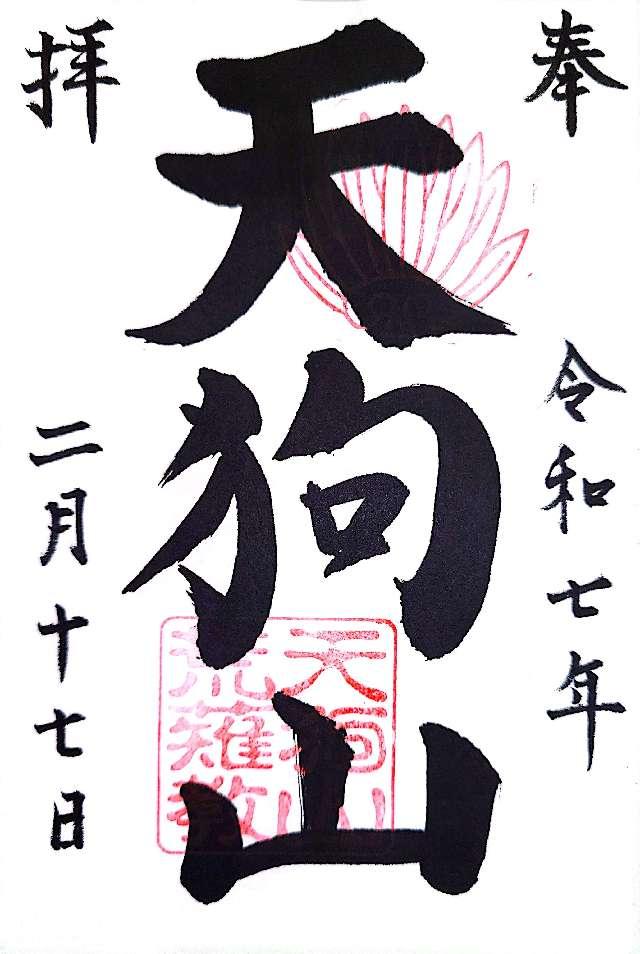 奉拝
天狗山
令和七年
二月十七日
天狗山
荒薙教